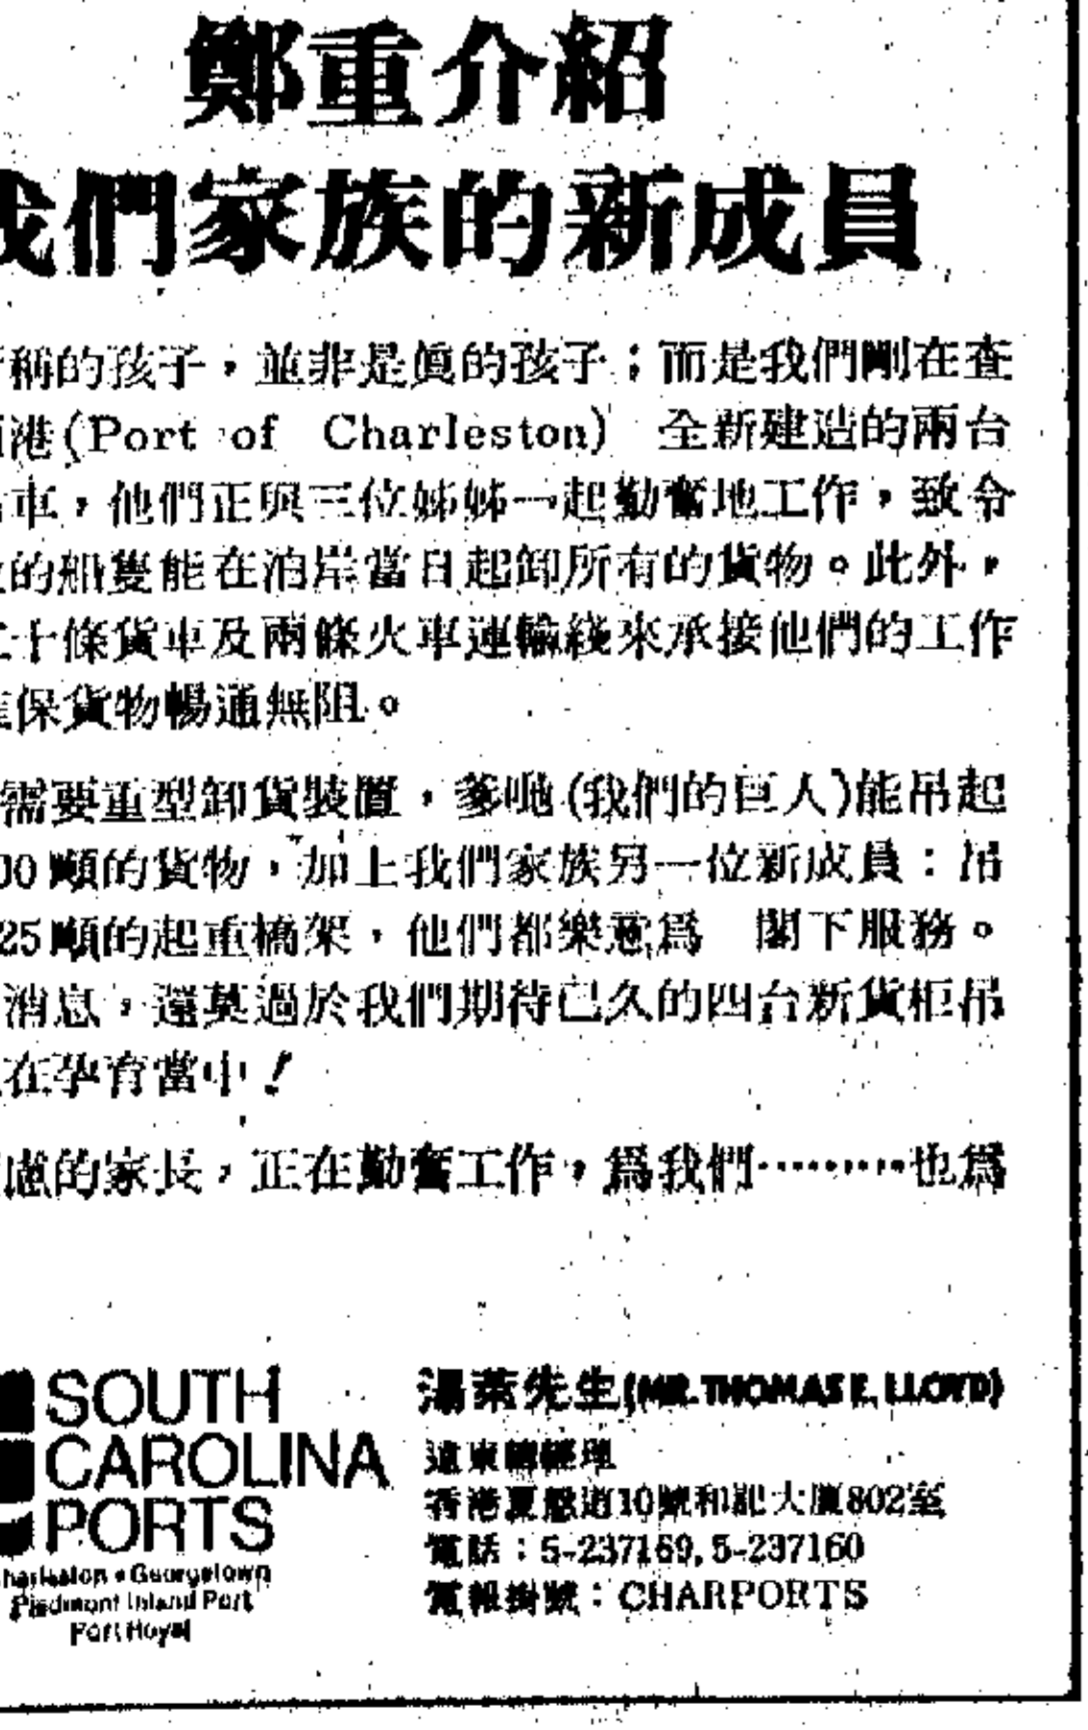 鄭重介紹
我們家族的新成員
稱的孩子，並非是眞的孩子；而是我們剛在查
港(Port of Charleston) 全新建造的兩台
車，他們正與三位姊姊一起勤奮地工作，致令
的船隻能在泊岸當日起卸所有的貨物。此外，
二十條貨車及兩條火車運輸綫來承接他們的工作
保貨物暢通無阻。
需要重型卸貨裝置，爹哋(我們的巨人)能吊起
00噸的貨物，加上我們家族另一位新成員：吊
25噸的起重橋架，他們都樂意爲 閣下服務。
消息，還莫過於我們期待已久的四台新貨柜吊
在孕育當中！
慮的家長，正在勤奮工作，爲我們………也爲
SOUTH
CAROLINA
PORTS
Charleston • Georgetown
Piedmont Inland Port
Port Royal
湯萊先生(MR. THOMAS E. LLOYD)
遠東總經理
香港夏慤道10號和記大厦802室
電話：5-237169, 5-237160
電報掛號：CHARPORTS